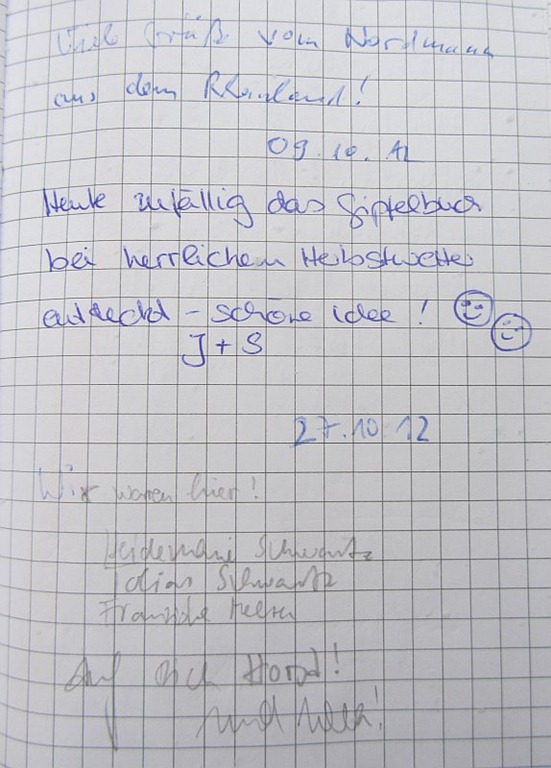 Viele Grüße vom Nordmann
aus dem Rheinland!
09.10.12
Heute zufällig das Gipfelbuch
bei herrlichem Herbstwetter
entdeckt – schöne idee! ☺☺
J + S
27.10.12
Wir waren hier!
Heidemarie Schwartz
Schwartz
Franziska
Auf dich Horst!
und